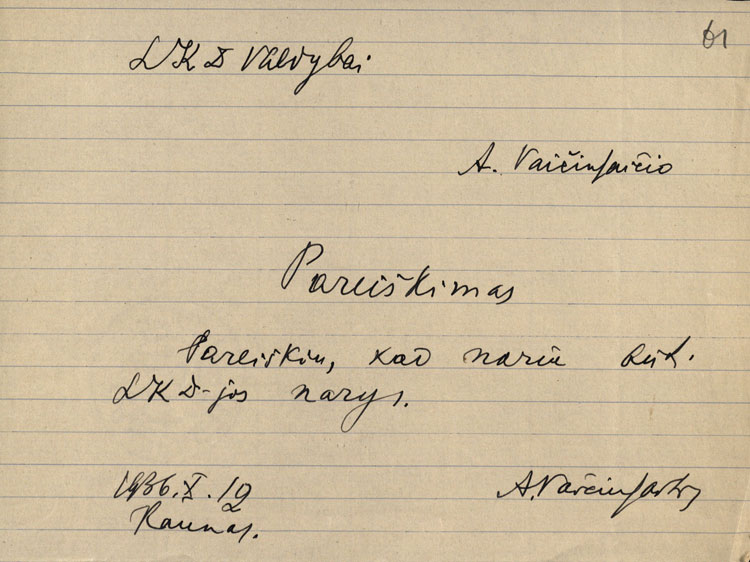 61
LKD Valdybai
A. Vaičiulaičio
Pareiškimas
Pareiškiu, kad noriu būti
LKD-jos narys.
1936.X.19
Kaunas.
A. Vaičiulaitis